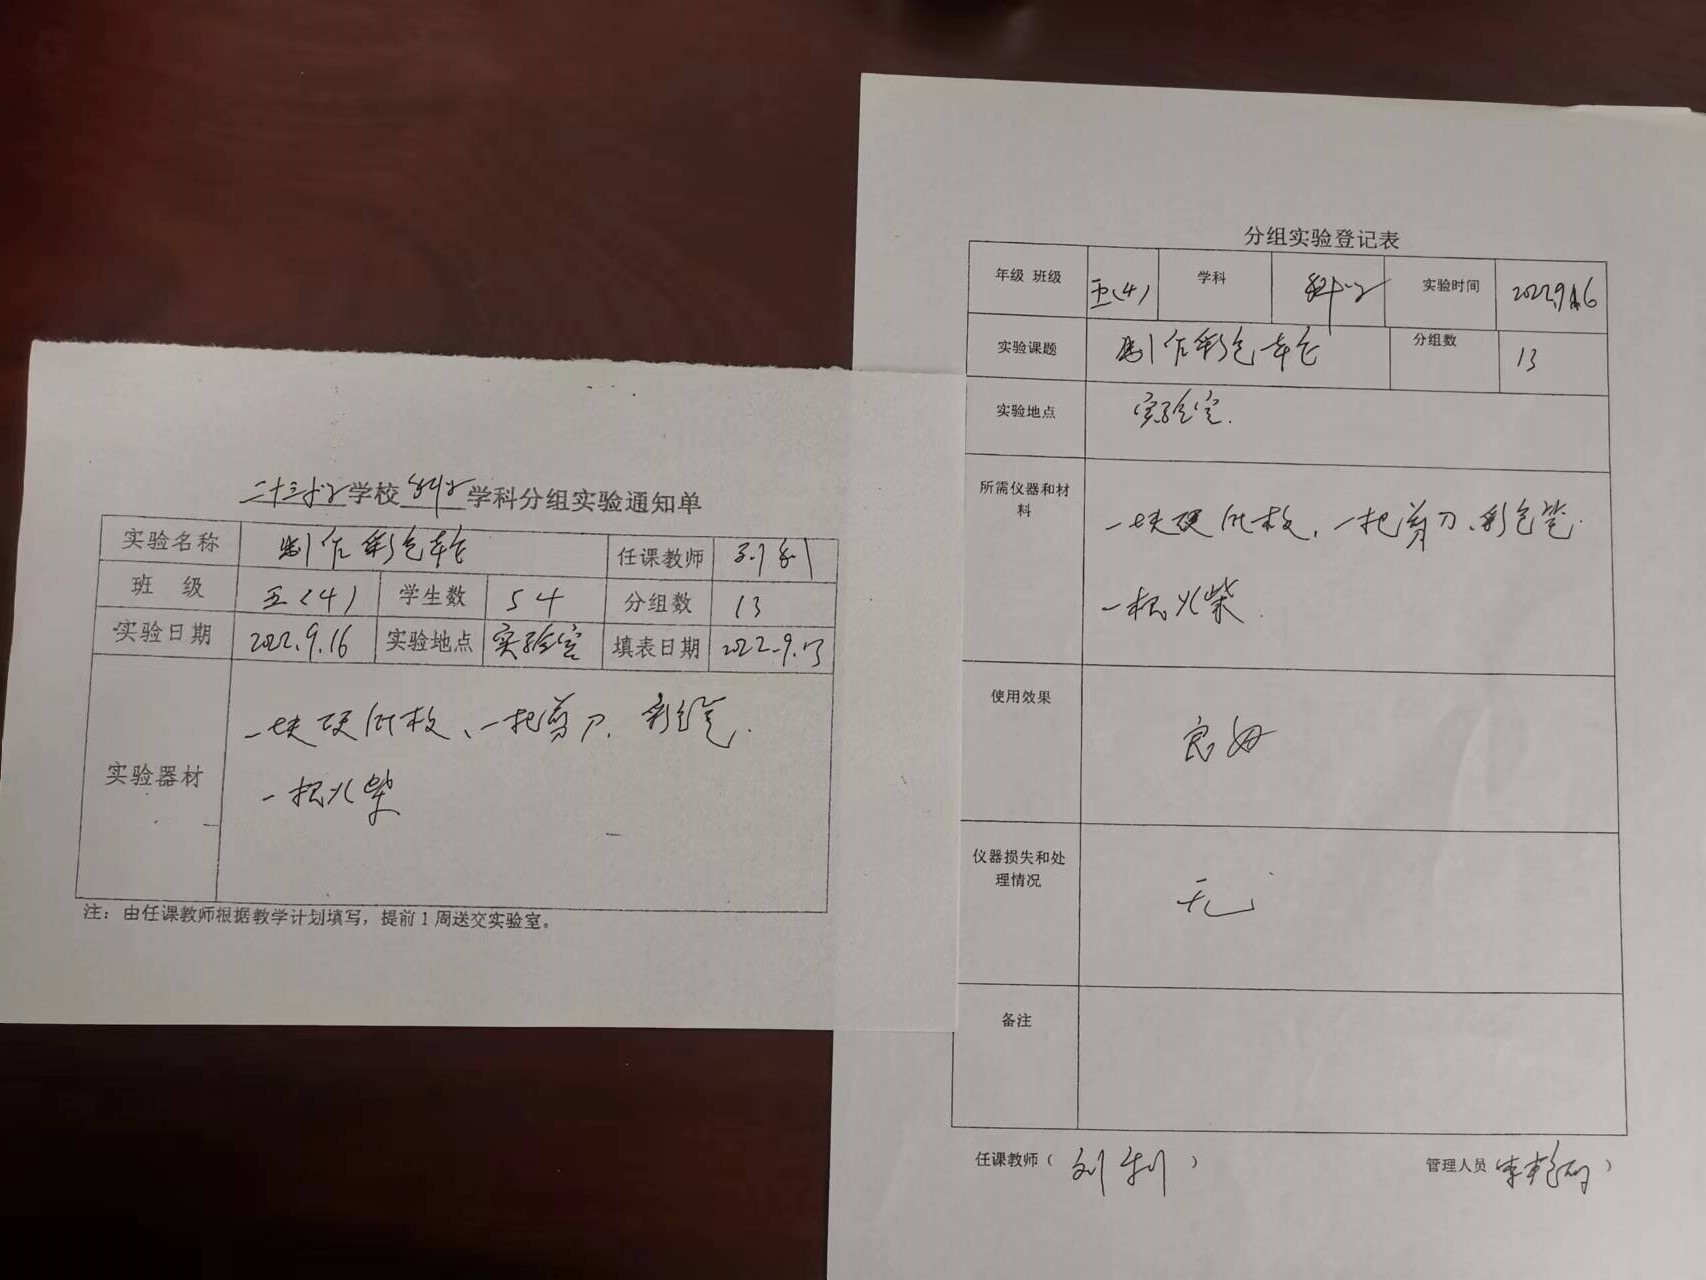 二十三小学校 科学 学科分组实验通知单
实验名称 制作彩色轮 任课教师 刘利
班 级 五(4) 学生数 54 分组数 13
实验日期 2022.9.16 实验地点 实验室 填表日期 2022.9.13
实验器材 一块硬纸板、一把剪刀、彩色笔.
一根火柴
注：由任课教师根据教学计划填写，提前1周送交实验室。
分组实验登记表
年级 班级 五(4) 学科 科学 实验时间 2022.9.16
实验课题 制作彩色轮 分组数 13
实验地点 实验室.
所需仪器和材
料
一块硬纸板、一把剪刀、彩色笔.
一根火柴.
使用效果 良好
仪器损失和处
理情况
无
备注
任课教师（ 刘利 ） 管理人员 ）